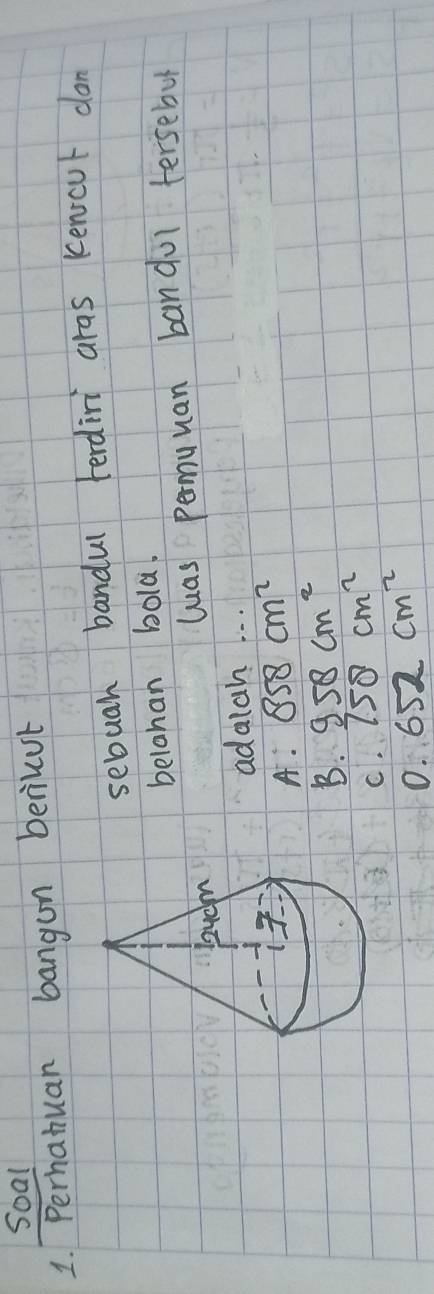 Soal
1. Perhatikan bangun berikut
sebuah bandul terdiri atas kerucut dan
belahan bola.
Luas Permukan bandul tersebut
adalah ...
24cm
7
A. 858 cm²
B. 958 cm²
C. 758 cm²
D. 652 cm²